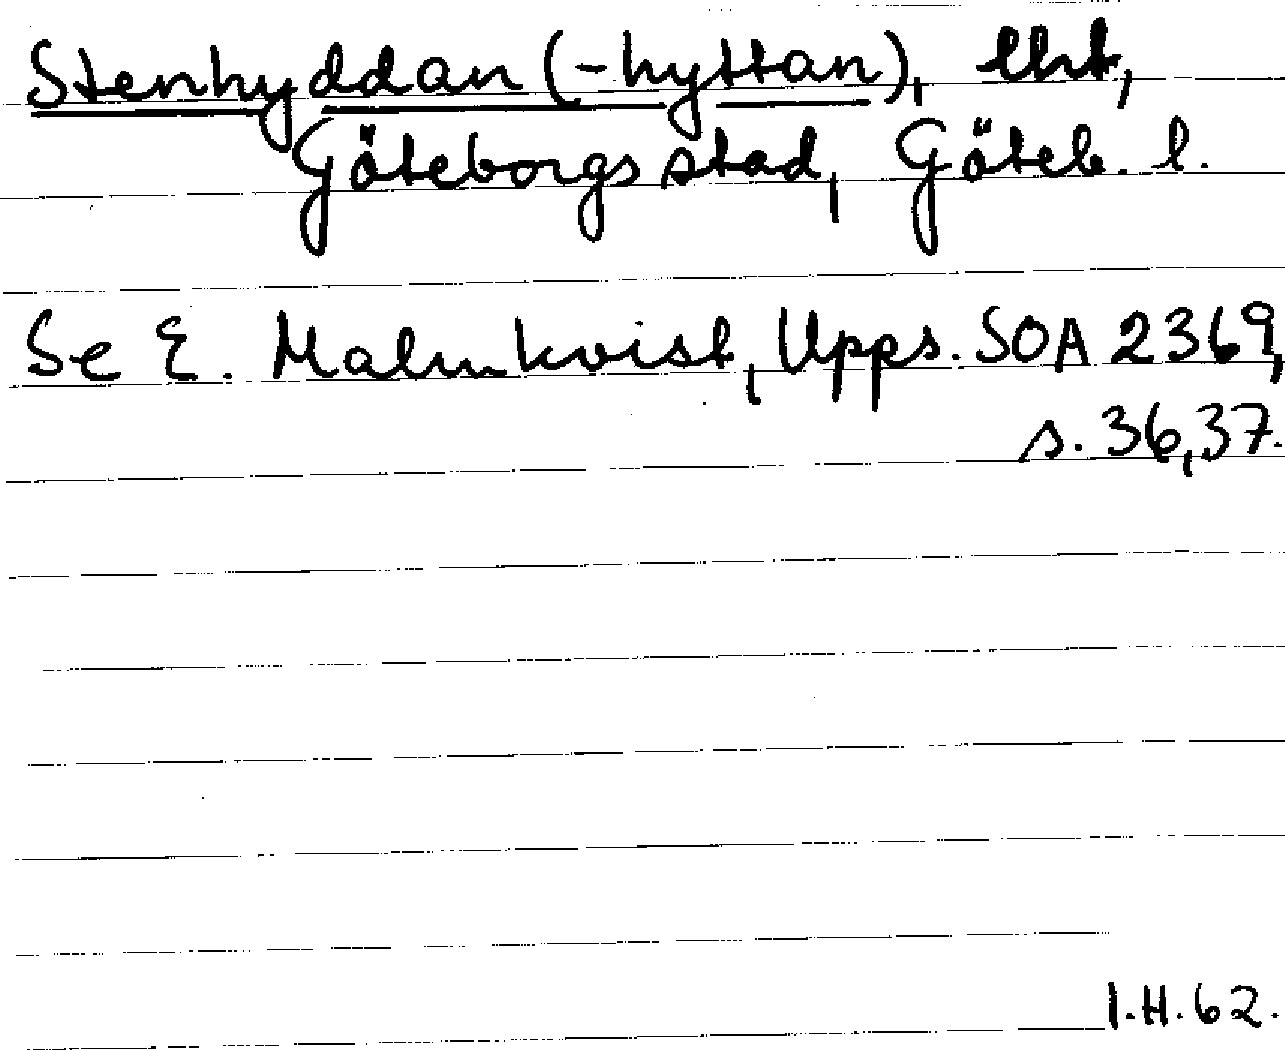 Stenhyddan (-hyttan), lht,
Göteborgs stad, Göteb. l.
Se E. Malmkvist, Upps. SOA 2369,
s. 36,37.
I.H. 62.